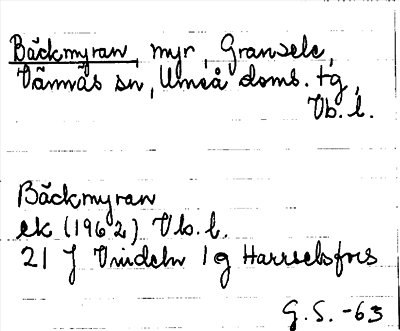 Bäckmyran, myr, Gransele,
Vännäs sn, Umeå doms. tg,
Vb. l.
Bäckmyran
ek (1962) Vb. l.
21 J Vindeln 1g Harrselsfors
G.S. -63